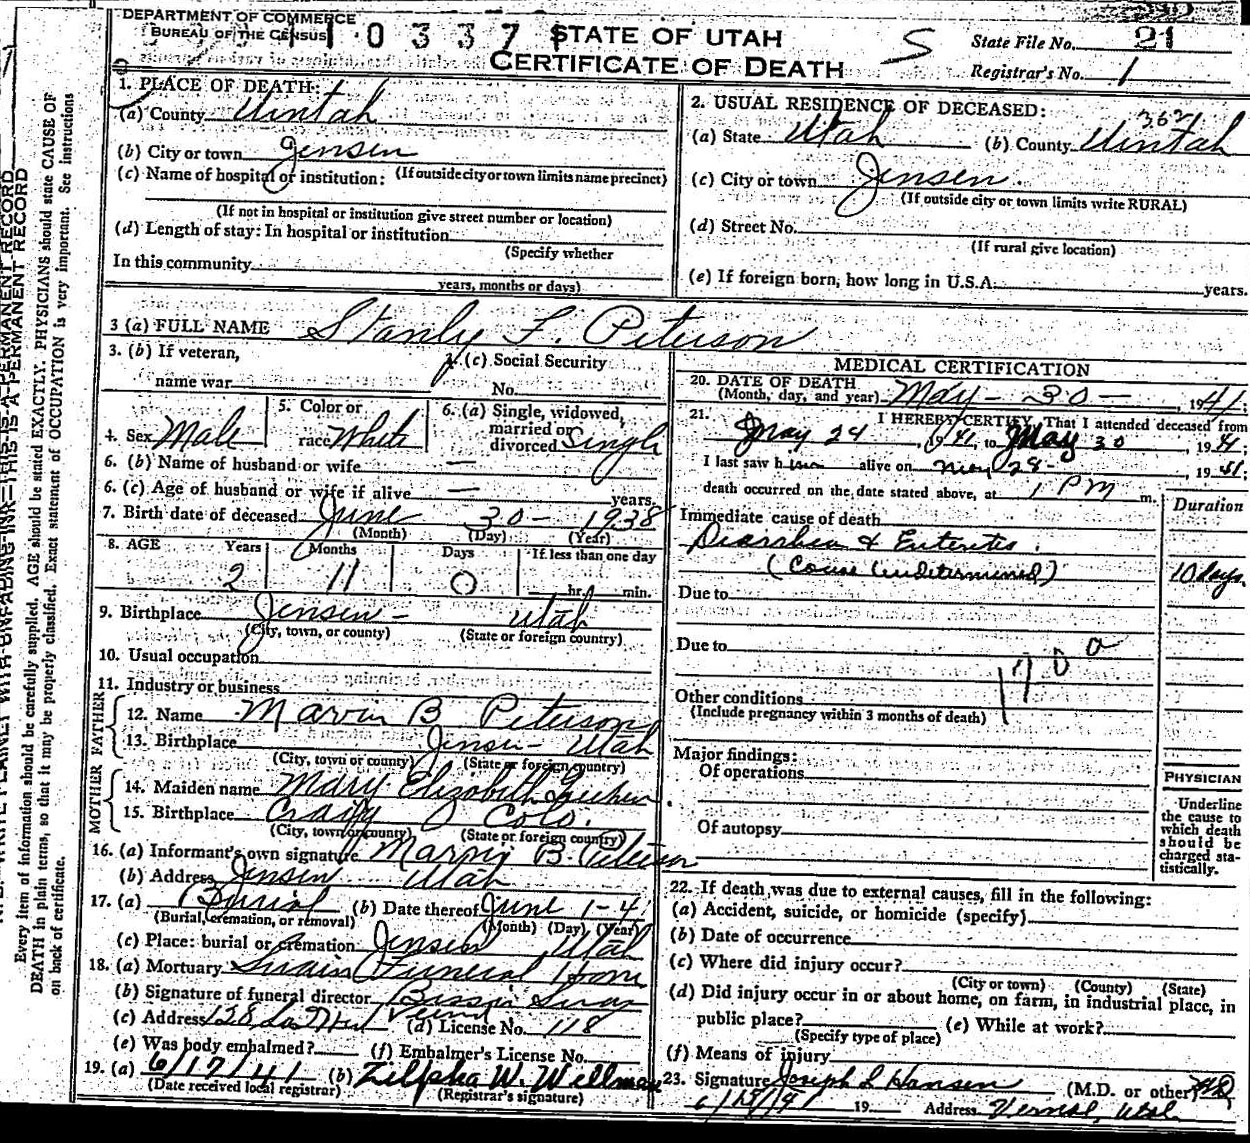 DEPARTMENT OF COMMERCE
BUREAU OF THE CENSUS
10337
STATE OF UTAH
CERTIFICATE OF DEATH
S
State File No. 21
Registrar's No. 1
1. PLACE OF DEATH:
(a) County Uintah
(b) City or town Jensen
(c) Name of hospital or institution: (If outside city or town limits name precinct)
(If not in hospital or institution give street number or location)
(d) Length of stay: In hospital or institution
(Specify whether
In this community
years, months or days)
2. USUAL RESIDENCE OF DECEASED:
3621
(a) State Utah (b) County Uintah
(c) City or town Jensen
(If outside city or town limits write RURAL)
(d) Street No.
(If rural give location)
(e) If foreign born, how long in U.S.A. years.
3 (a) FULL NAME Stanly F. Peterson
3. (b) If veteran,
name war
(c) Social Security
No.
4. Sex Male
5. Color or
race White
6. (a) Single, widowed,
married or
divorced Single
6. (b) Name of husband or wife —
6. (c) Age of husband or wife if alive — years.
7. Birth date of deceased June 30 - 1938
(Month) (Day) (Year)
8. AGE Years Months Days If less than one day
2 11 0 hr. min.
9. Birthplace Jensen - Utah
(City, town, or county) (State or foreign country)
10. Usual occupation
11. Industry or business
FATHER
12. Name Marvin B Peterson
13. Birthplace Jensen - Utah
(City, town or county) (State or foreign country)
MOTHER
14. Maiden name Mary Elizabeth
15. Birthplace Craig Colo.
(City, town or county) (State or foreign country)
16. (a) Informant's own signature Marvin B. Peterson
(b) Address Jensen Utah
17. (a) Burial (b) Date thereof June 1-41
(Burial, cremation, or removal) (Month) (Day) (Year)
(c) Place: burial or cremation Jensen Utah
18. (a) Mortuary Swain Funeral Home
(b) Signature of funeral director
(c) Address 128 (d) License No. 118
(e) Was body embalmed? (f) Embalmer's License No.
19. (a) 6/17/41 (b) Zilpha W. Wellman
(Date received local registrar) (Registrar's signature)
MEDICAL CERTIFICATION
20. DATE OF DEATH
(Month, day, and year) May - 30 - , 1941;
21. I HEREBY CERTIFY, That I attended deceased from
May 24, 1941, to May 30, 1941;
I last saw him alive on May 28 - 1941;
death occurred on the date stated above, at 1 PM m.
Duration
Immediate cause of death
Diarrhea & Enteritis.
(Cause Undetermined) 10 days.
Due to
Due to
170 a
Other conditions
(Include pregnancy within 3 months of death)
Major findings:
Of operations
Of autopsy
PHYSICIAN
Underline
the cause to
which death
should be
charged sta-
tistically.
22. If death was due to external causes, fill in the following:
(a) Accident, suicide, or homicide (specify)
(b) Date of occurrence
(c) Where did injury occur?
(City or town) (County) (State)
(d) Did injury occur in or about home, on farm, in industrial place, in
public place? (e) While at work?
(Specify type of place)
(f) Means of injury
23. Signature Joseph L Hansen (M.D. or other) MD
19 Address Vernal, Utah
WRITE PLAINLY WITH UNFADING INK—THIS IS A PERMANENT RECORD
Every item of information should be carefully supplied. AGE should be stated EXACTLY. PHYSICIANS should state CAUSE OF
DEATH in plain terms, so that it may be properly classified. Exact statement of OCCUPATION is very important. See instructions
on back of certificate.